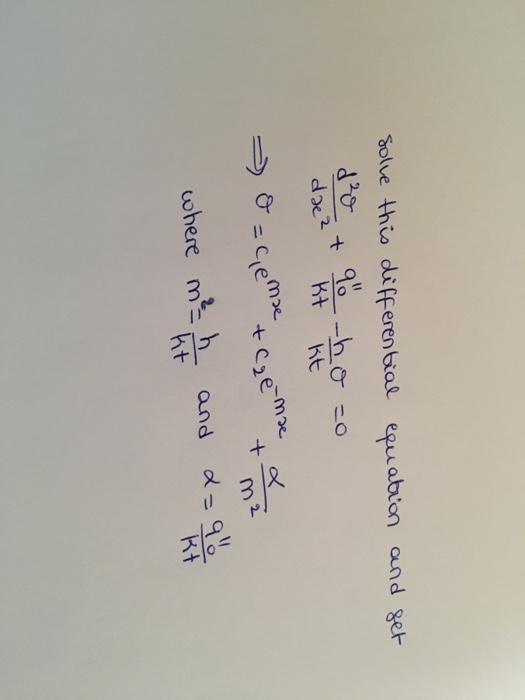 solve this differential equation and get
d²θ/dx² + q"₀/kt - h/kt θ = 0
⇒ θ = c₁e^mx + c₂e^-mx + α/m²
where m² = h/kt and α = q"₀/kt